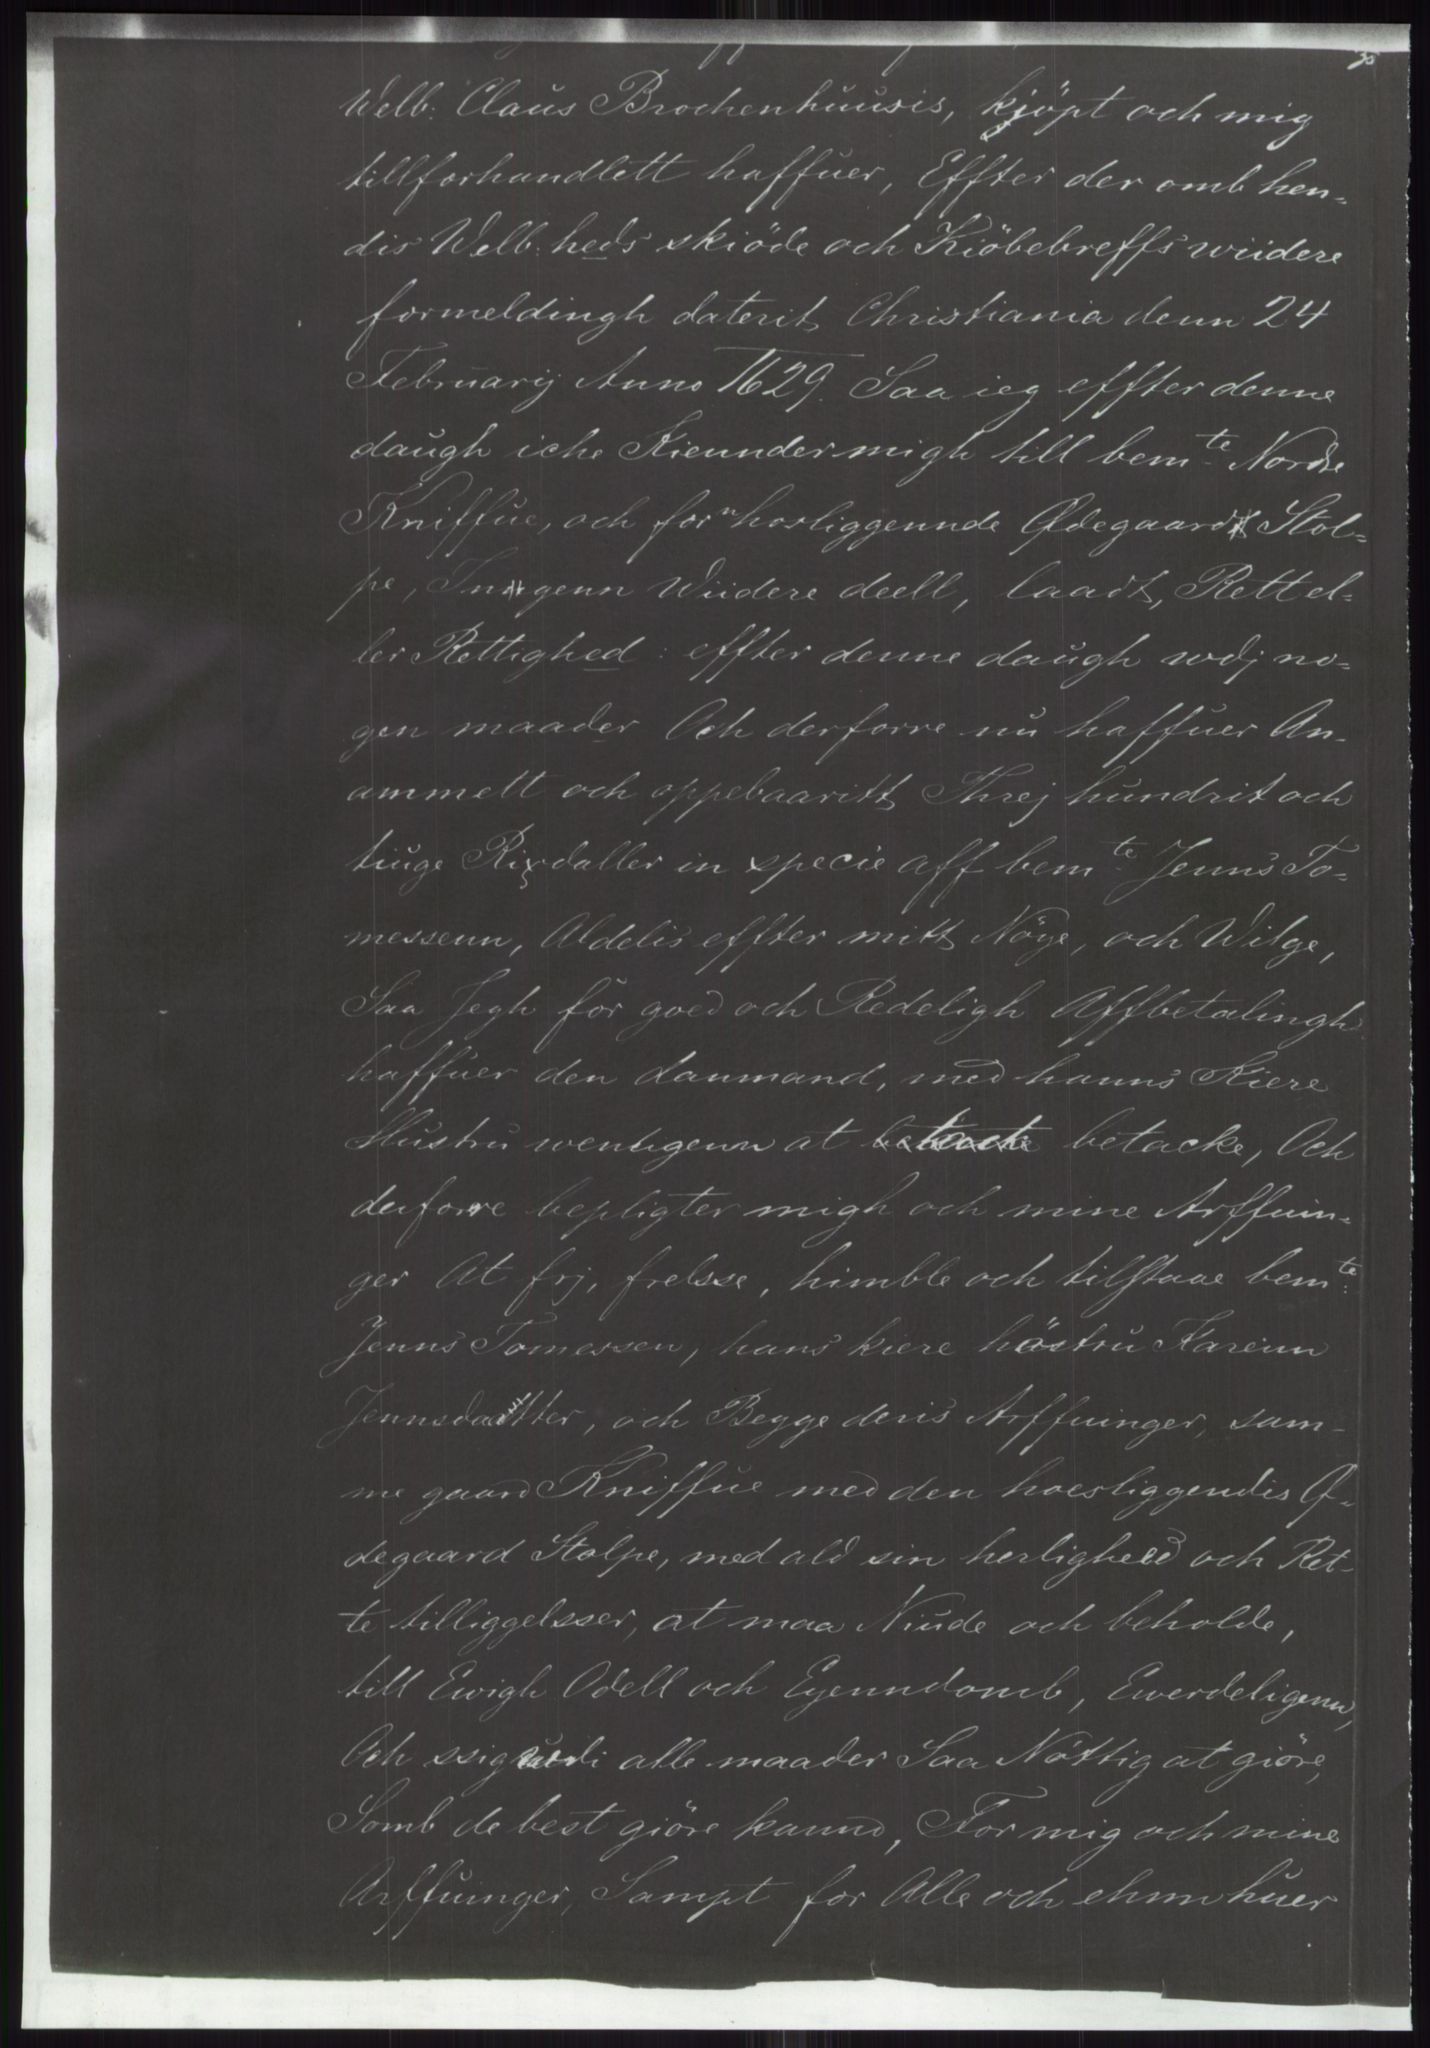 Welb. Claus Brochenhuusis, kjöpt och mig
tillforhandlett haffuer, Effter der omb hen-
dis Welb:heds skiöde och Kiöbebreffs wiidere
formeldingh daterit Christiania denn 24
Februarij Anno 1629. Saa ieg effter denne
daugh iche Kiennder migh till bemte Nordre
Kniffue, och forn hosliggennde Ødegaard Stol-
pe, Inngenn Wiidere deell, laadt, Rett el-
ler Rettighed: effter denne daugh wdj no-
gen maader Och derforre nu haffuer An-
ammett och oppebaaritt Threj hundrit och
tiuge Rixdaller in specie aff bemte Jenns To-
messenn, Aldelis effter mitt Nöye, och Wilge,
Saa Jegh för goed och Redeligh Affbetalingh
haffuer den danmand, med hanns Kiere
Hustru wenligenn at betacke, Och
derforre bepligter migh och mine Arffuin-
ger At frj, frelsse, himble och tilstaae bemte
Jenns Tomessen, hans kiere höstru Karenn
Jennsdaatter, och Begge deris Arffuinger, sam-
me gaard Kniffue med den hoesliggendis Ø-
degaard Stolpe, med ald sin herlighed och Ret-
te tilliggelsser, at maa Niude och beholde,
till Ewigh Odell och Eyenndomb, Ewerdeligenn,
Och ssig wdi alle maader Saa Nöttig at giöre,
Somb de best giöre kannd, For mig och mine
Arffuinger, Sampt for Alle och ehnn huer